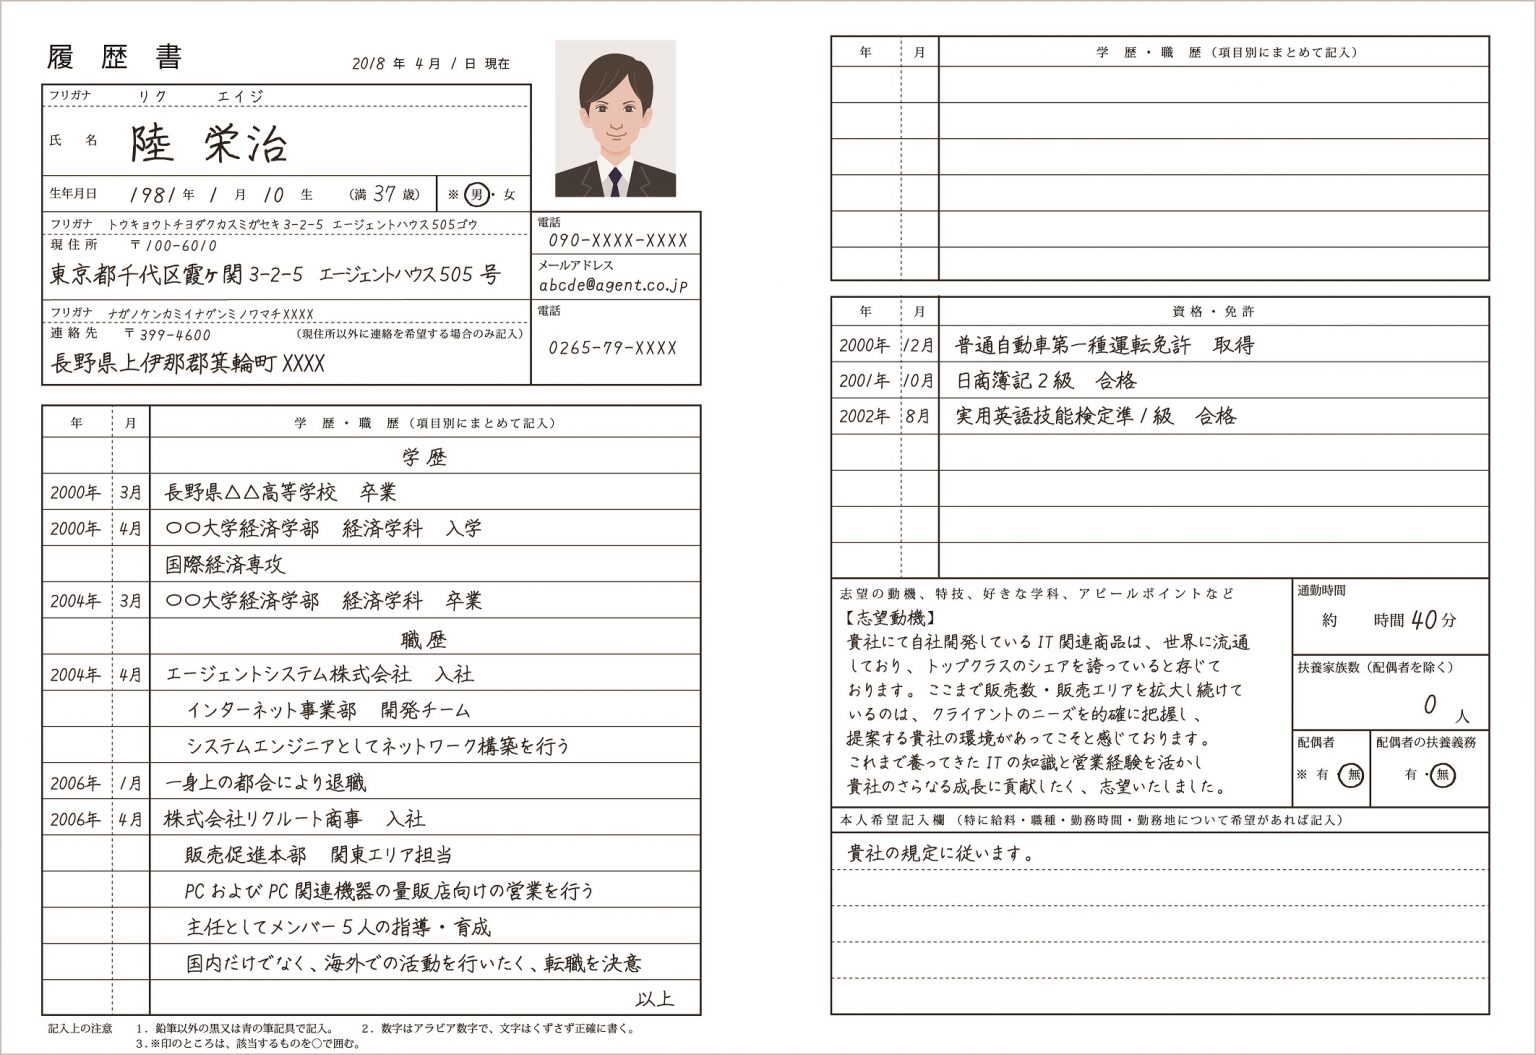 履 歴 書
2018 年 4 月 1 日 現在
フリガナ リク エイジ
氏 名 陸 栄治
生年月日 1981 年 1 月 10 生 (満 37 歳) ※ 男・女
フリガナ トウキョウトチヨダクカスミガセキ3-2-5 エージェントハウス505ゴウ
現住所 〒100-6010
東京都千代区霞ヶ関 3-2-5 エージェントハウス 505 号
電話
090-XXXX-XXXX
メールアドレス
abcde@agent.co.jp
フリガナ ナガノケンカミイナグンミノワマチXXXX
連絡先 〒399-4600 (現住所以外に連絡を希望する場合のみ記入)
長野県上伊那郡箕輪町 XXXX
電話
0265-79-XXXX
年 月 学 歴・職 歴(項目別にまとめて記入)
学歴
2000年 3月 長野県△△高等学校 卒業
2000年 4月 〇〇大学経済学部 経済学科 入学
国際経済専攻
2004年 3月 〇〇大学経済学部 経済学科 卒業
職歴
2004年 4月 エージェントシステム株式会社 入社
インターネット事業部 開発チーム
システムエンジニアとしてネットワーク構築を行う
2006年 1月 一身上の都合により退職
2006年 4月 株式会社リクルート商事 入社
販売促進本部 関東エリア担当
PC および PC 関連機器の量販店向けの営業を行う
主任としてメンバー 5 人の指導・育成
国内だけでなく、海外での活動を行いたく、転職を決意
以上
記入上の注意 1.鉛筆以外の黒又は青の筆記具で記入。 2.数字はアラビア数字で、文字はくずさず正確に書く。
3.※印のところは、該当するものを○で囲む。
年 月 学 歴・職 歴(項目別にまとめて記入)
年 月 資格・免許
2000年 12月 普通自動車第一種運転免許 取得
2001年 10月 日商簿記 2 級 合格
2002年 8月 実用英語技能検定準 1 級 合格
志望の動機、特技、好きな学科、アピールポイントなど
【志望動機】
貴社にて自社開発している IT 関連商品は、世界に流通
しており、トップクラスのシェアを誇っていると存じて
おります。ここまで販売数・販売エリアを拡大し続けて
いるのは、クライアントのニーズを的確に把握し、
提案する貴社の環境があってこそと感じております。
これまで養ってきた IT の知識と営業経験を活かし
貴社のさらなる成長に貢献したく、志望いたしました。
通勤時間
約 時間 40 分
扶養家族数(配偶者を除く)
0 人
配偶者
※ 有・無
配偶者の扶養義務
有・無
本人希望記入欄(特に給料・職種・勤務時間・勤務地について希望があれば記入)
貴社の規定に従います。